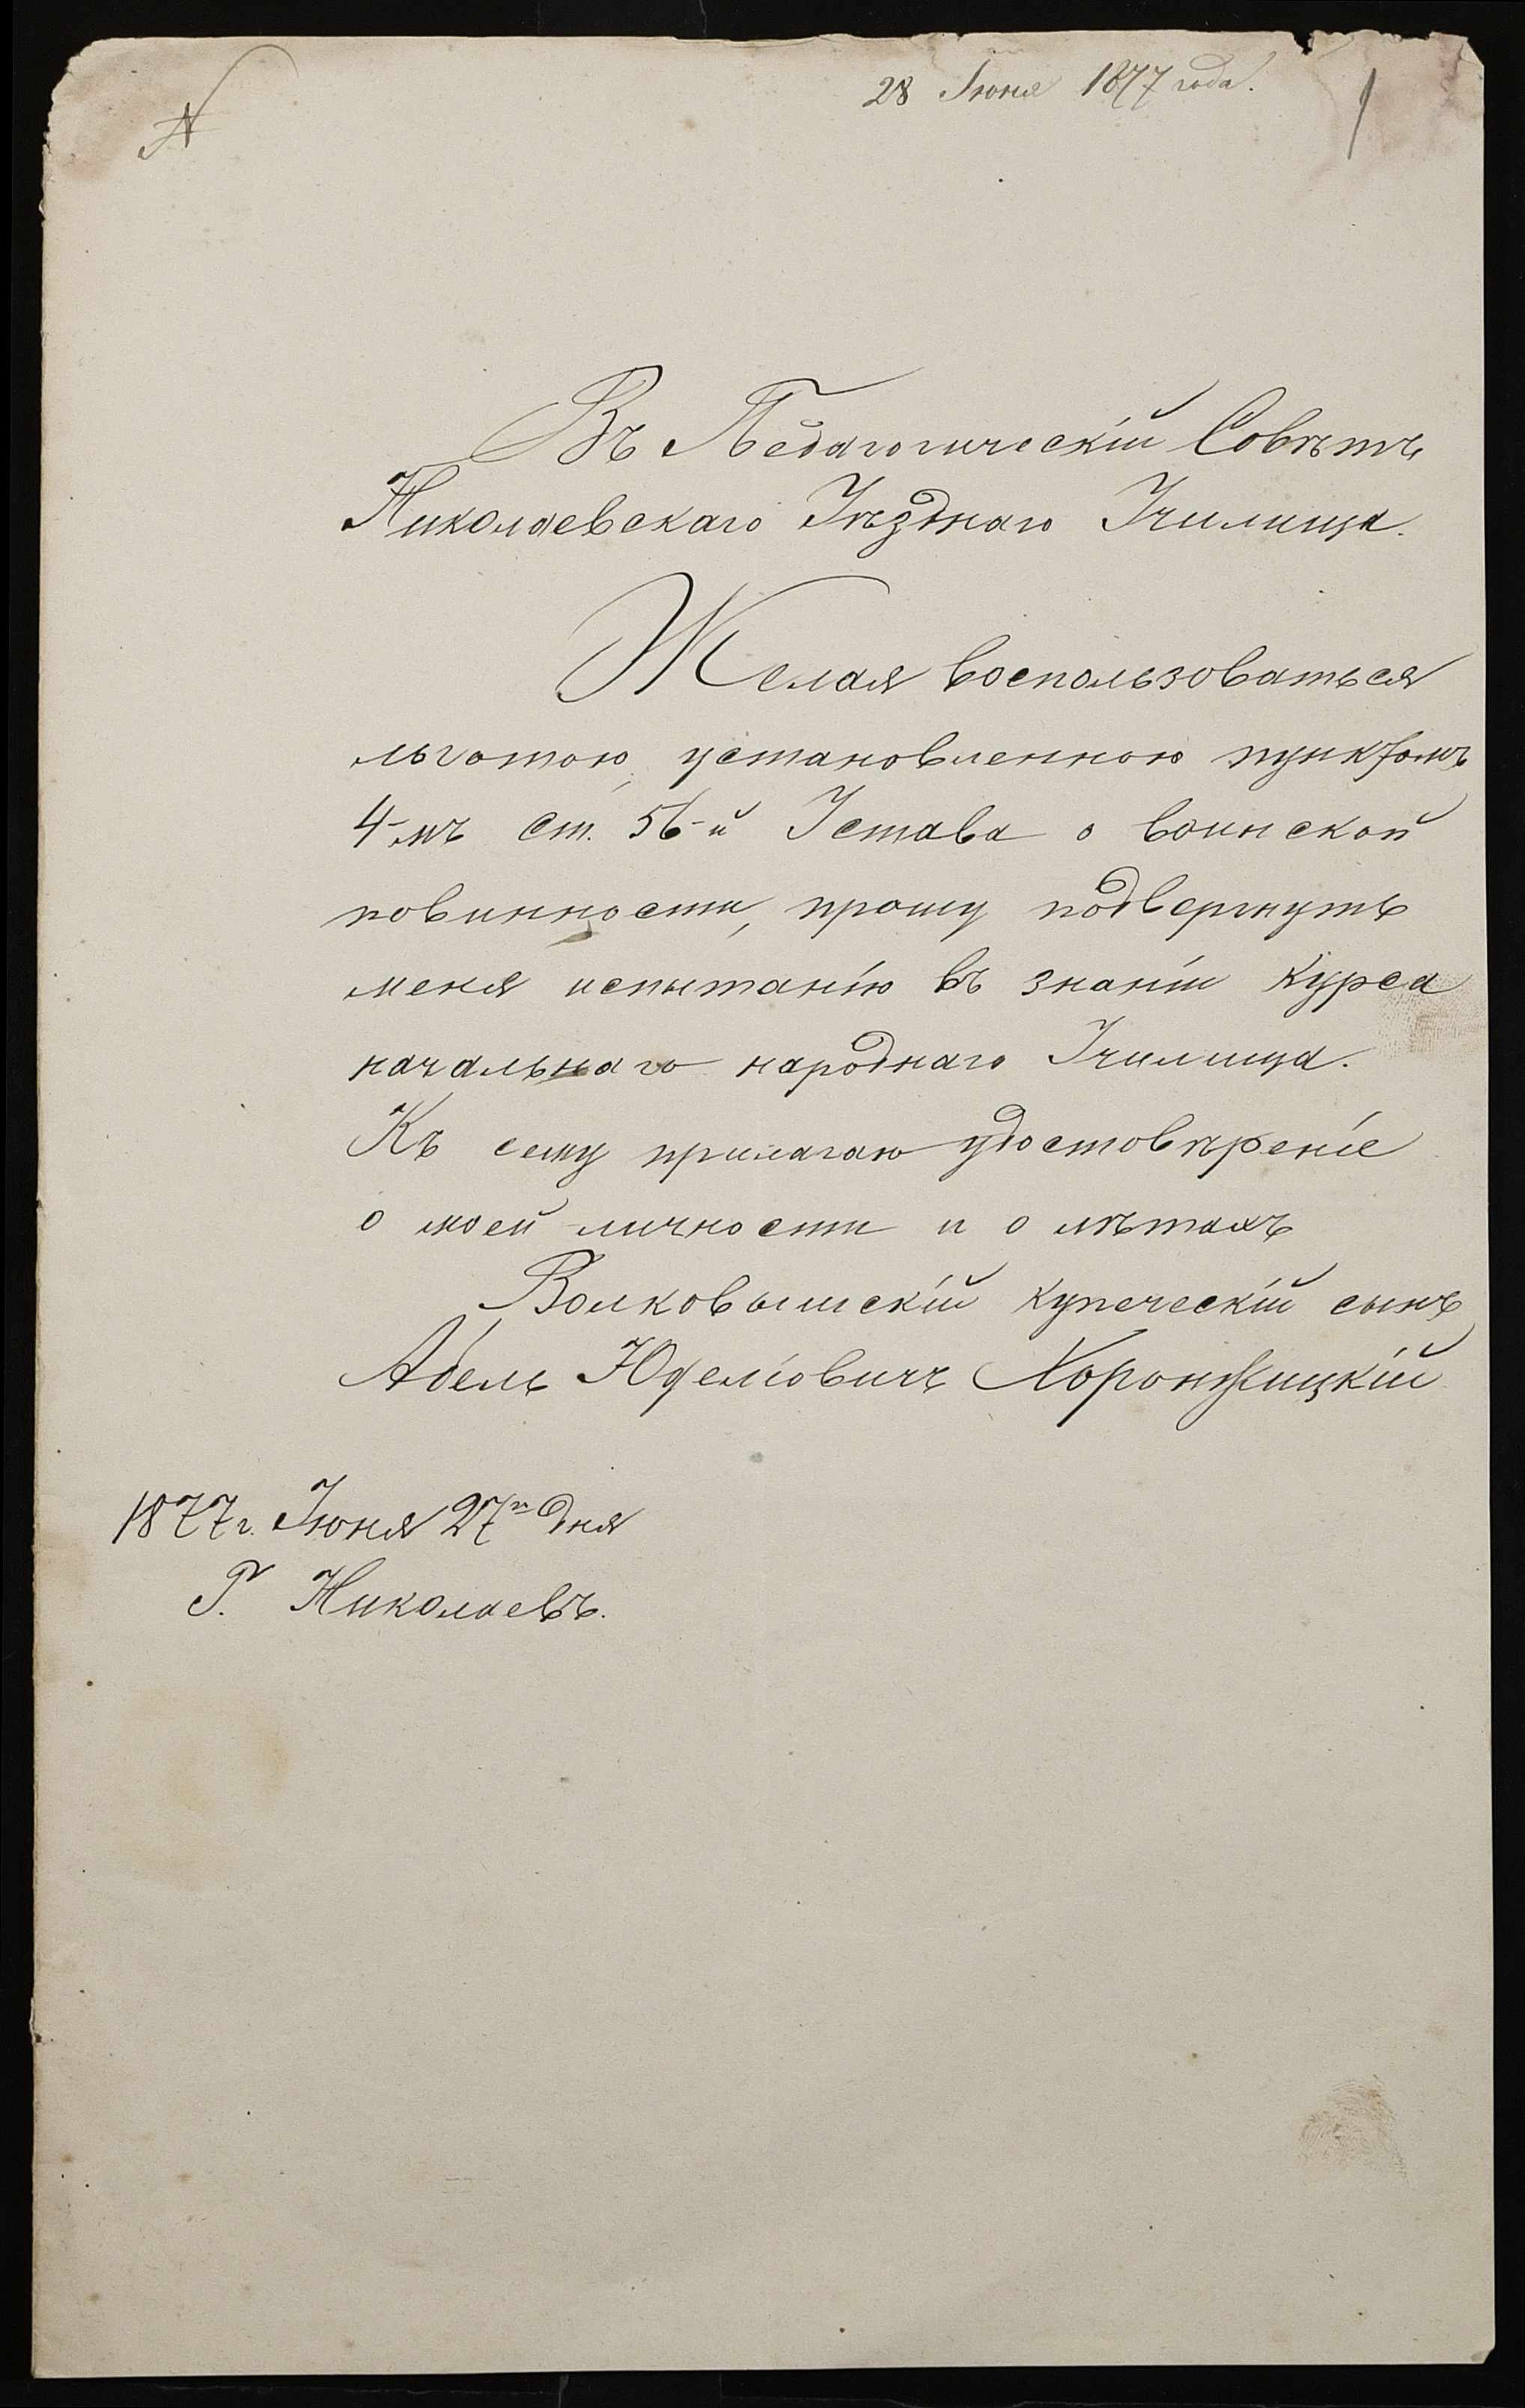 28 Іюня 1877 года.
1
Въ Педагогическій Совѣтъ
Николаевскаго Уѣзднаго Училища.
Желая воспользоваться
льготою, установленною пунктомъ
4-мъ ст. 56-й Устава о воинской
повинности, прошу подвергнуть
меня испытанію въ знаніи курса
начальнаго народнаго Училища.
Къ сему прилагаю удостовѣреніе
о моей личности и о лѣтахъ
Волковышскій купеческій сынъ
Абель Юделіовичъ Хоронжицкій
1877 г. Іюня 27го дня
Г. Николаевъ.